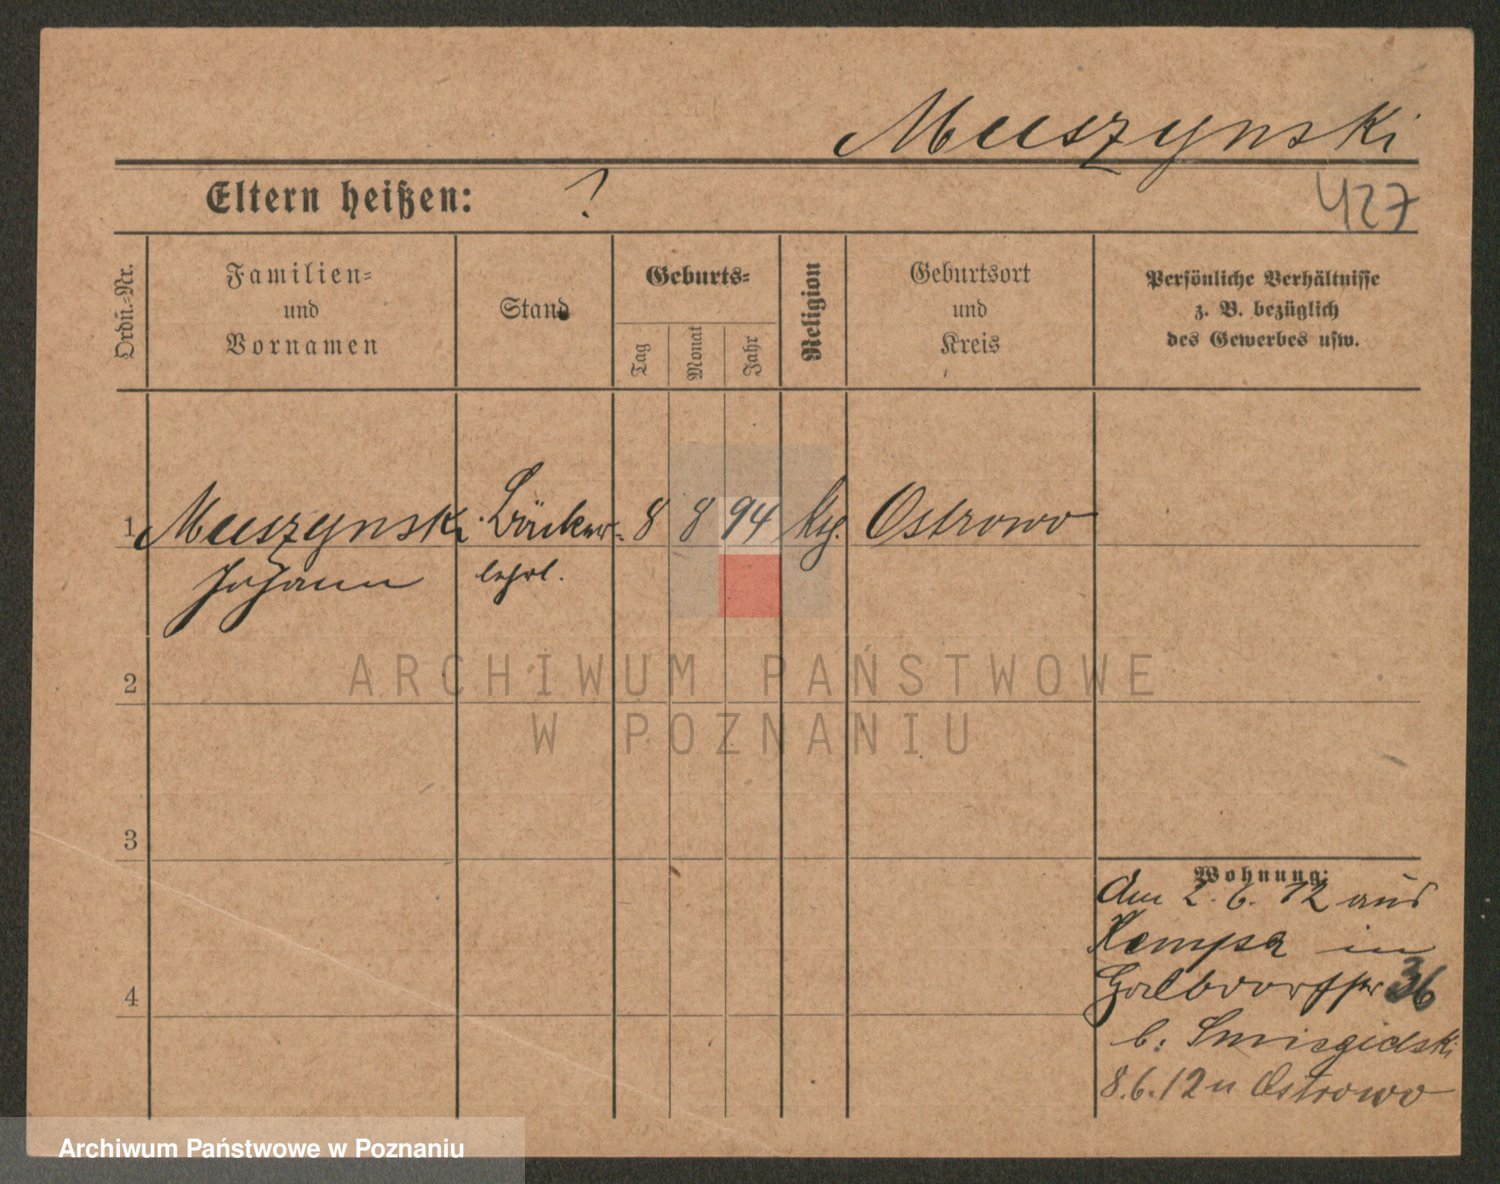 Muszynski
Eltern heißen: ?
427
Ordn.-Nr.
Familien-
und
Vornamen
Stand
Geburts-
Tag
Monat
Jahr
Religion
Geburtsort
und
Kreis
Persönliche Verhältnisse
z. B. bezüglich
des Gewerbes usw.
1 Muszynski Bäcker- 8 8 94 Ostrowo
Johann lehrl.
2
3
4
Wohnung:
den 2. 6. 12 aus
Kempa in
36
b.
8.6.12 n Ostrowo
ARCHIWUM PAŃSTWOWE
W POZNANIU
Archiwum Państwowe w Poznaniu